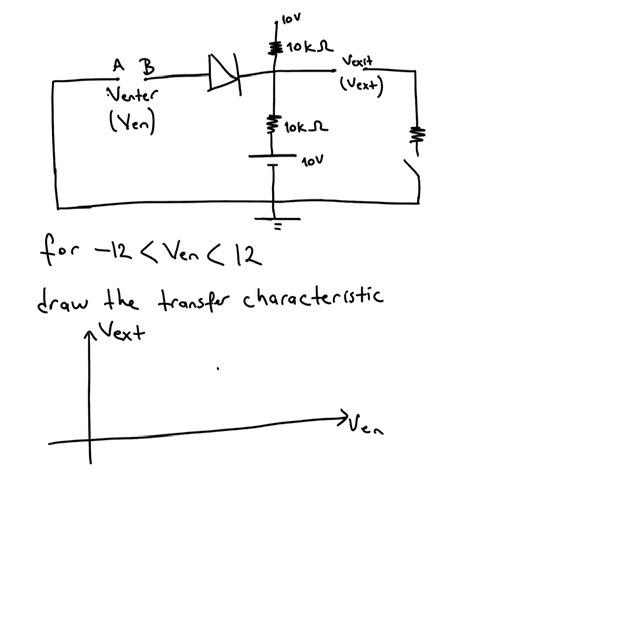 10V
10kΩ
A B
Venter
(Ven)
Vexit
(Vext)
10kΩ
10V
for -12 < Ven < 12
draw the transfer characteristic
Vext
Ven